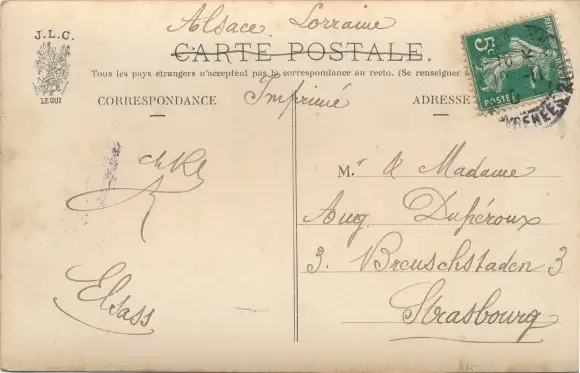 Alsace Lorraine
J.L.C.
CARTE POSTALE.
Tous les pays étrangers n'acceptent pas la correspondance au recto. (Se renseigner à
LE GUI
CORRESPONDANCE
Imprimé
ADRESSE
5c
POSTES
Mr & Madame
Aug. Dupéroux
3. Breuschstaden 3
Strasbourg
Elsass